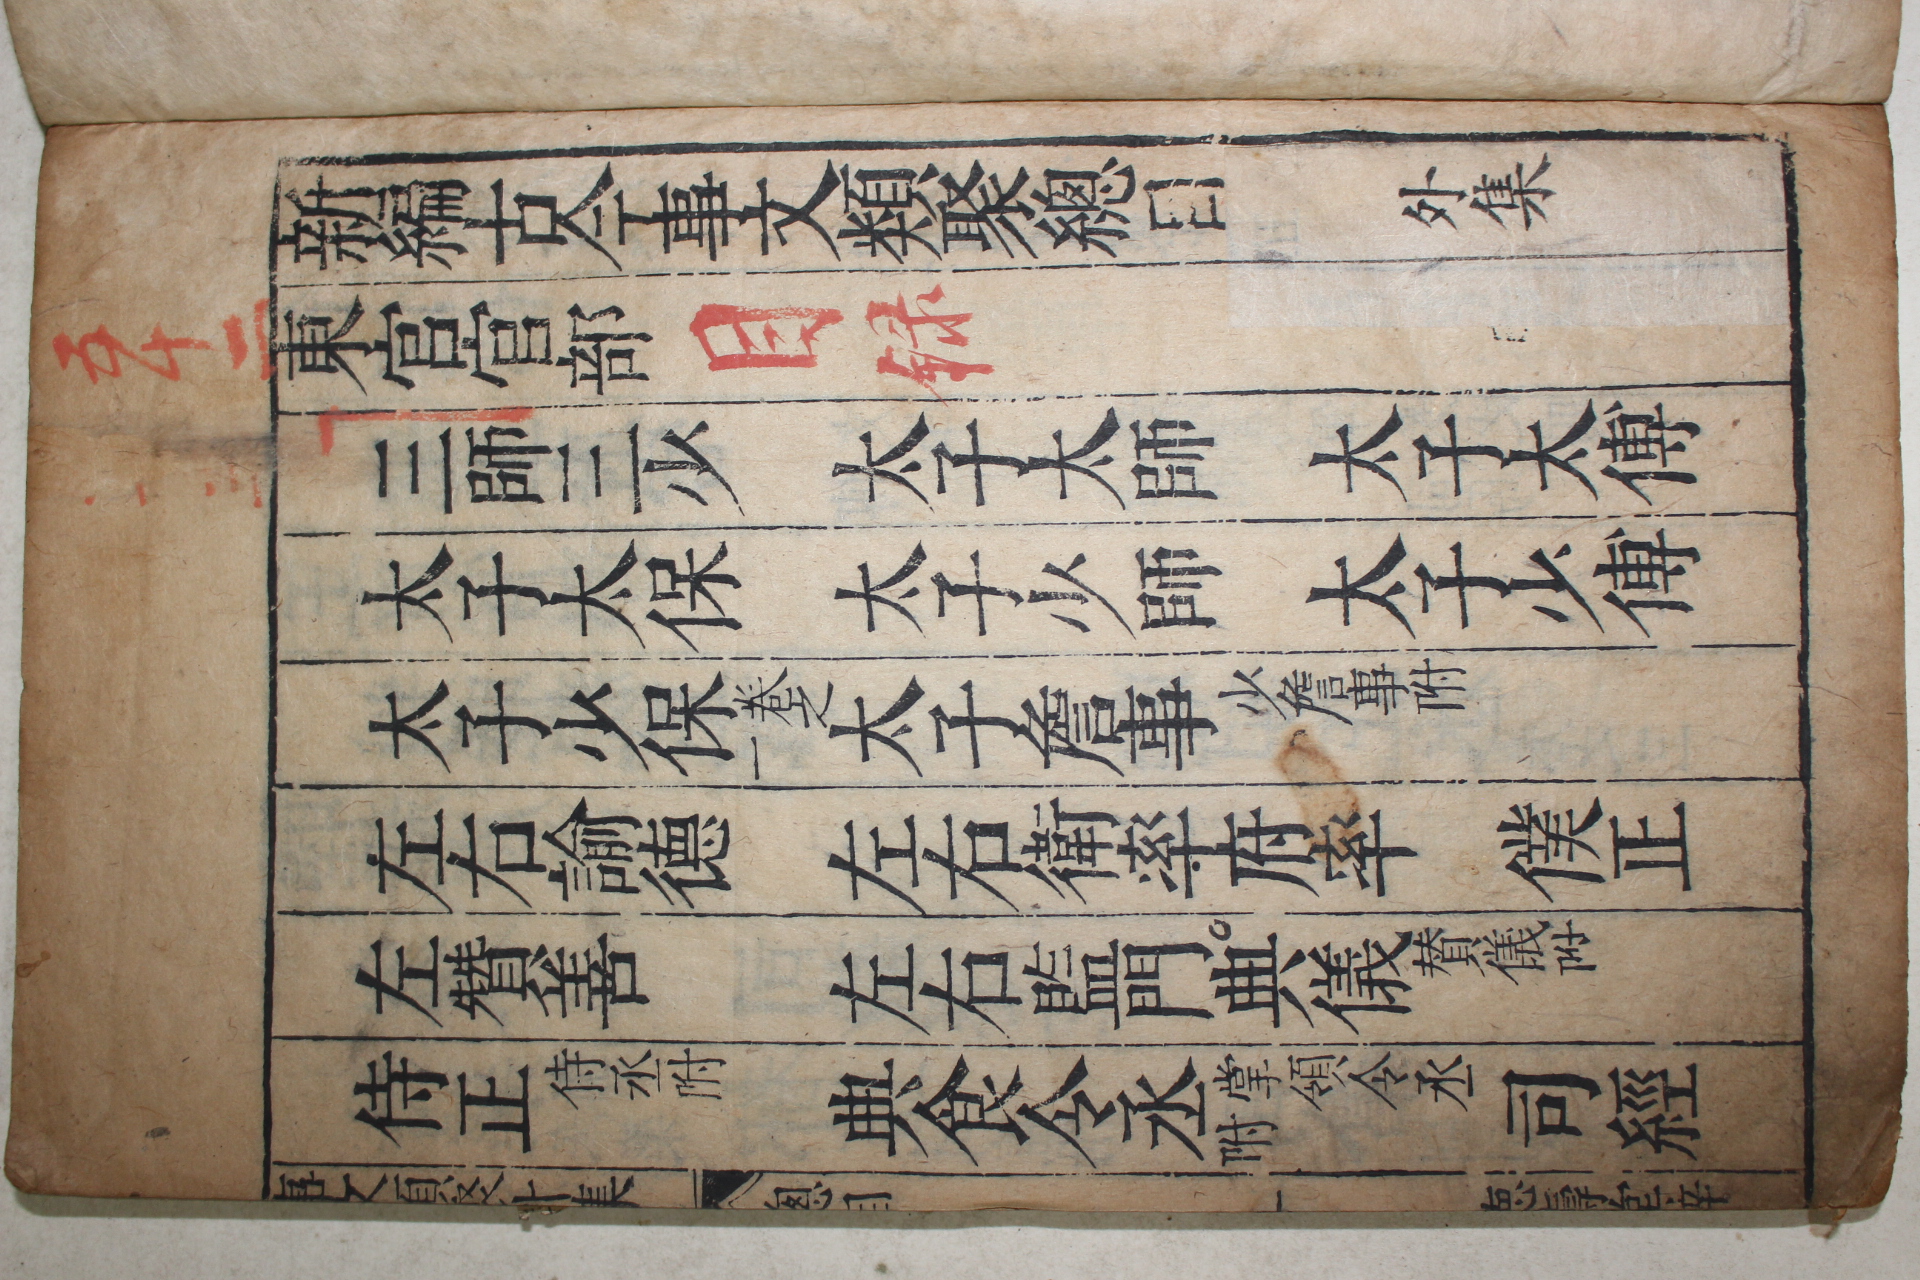 新編古今事文類聚總目　外集
東宮官部　目錄
三師三少　太子太師　太子太傅
太子太保　太子少師　太子少傅
太子少保卷之一　太子詹事少詹事附
左右諭德　左右衛率府率　僕正
左贊善　左右監門　典儀替儀附
侍正侍丞附　典食令丞掌領令丞附　司經
事文類聚外集　總目　一
五十二